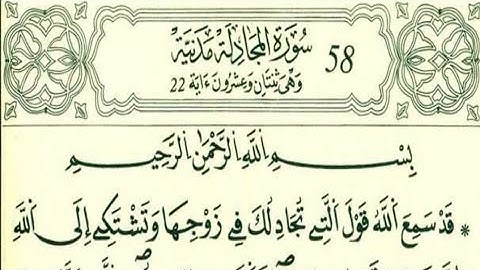 سُورَةُ الْمُجَادِلَةِ مَدَنِيَّة 58
وَهْىَ ثِنْتَانِ وَعِشْرُونَ ءَايَة 22
بِسْمِ اللَّهِ الرَّحْمَٰنِ الرَّحِيمِ
* قَدْ سَمِعَ اَللَّهُ قَوْلَ اَلتِے تُجَادِلُكَ فِے زَوْجِهَا وَتَشْتَكِے إِلَى اَللَّهِ